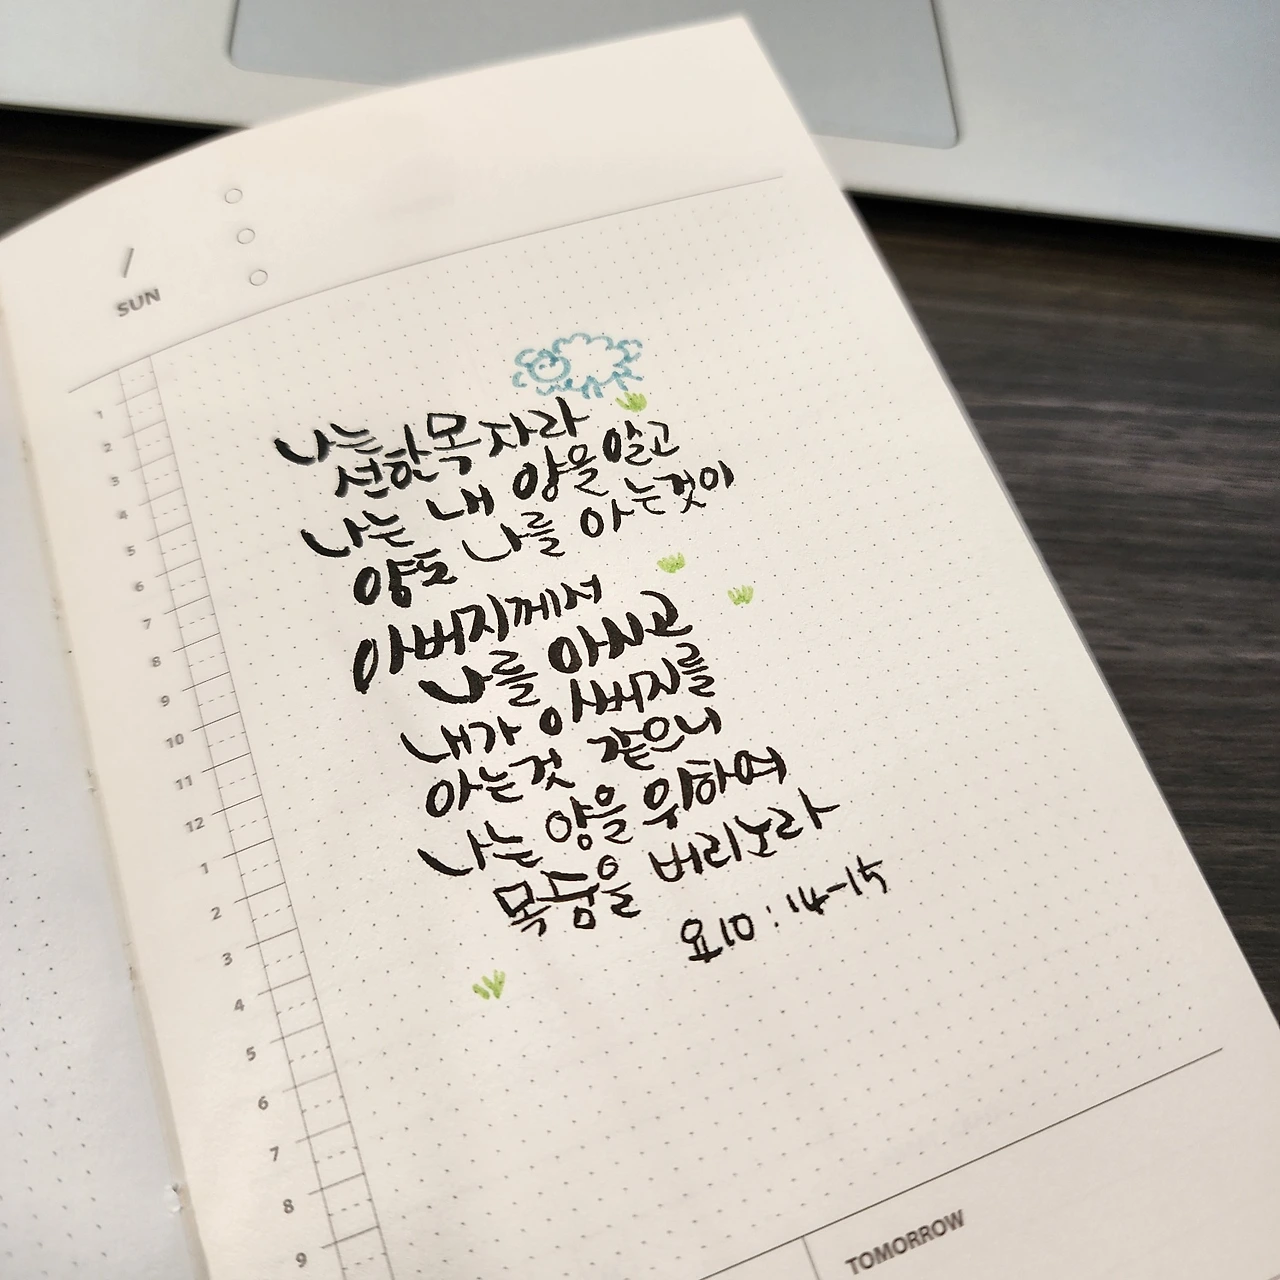 /
SUN
나는
선한목자라
나는 내 양을알고
양도 나를 아는것이
아버지께서
나를 아시고
내가 아버지를
아는것 같으니
나는 양을 위하여
목숨을 버리노라
요10:14-15
1
2
3
4
5
6
7
8
9
10
11
12
1
2
3
4
5
6
7
8
9
TOMORROW